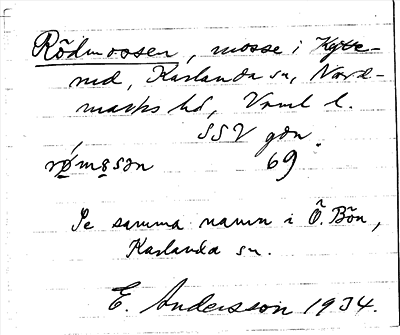 Rödmossen, mosse i Hytte-
ned, Karlanda sn, Nord-
marks hd, Vrml l.
SSV gdn.
69
Se samma namn i Ö. Bön,
Karlanda sn.
E. Andersson 1934.